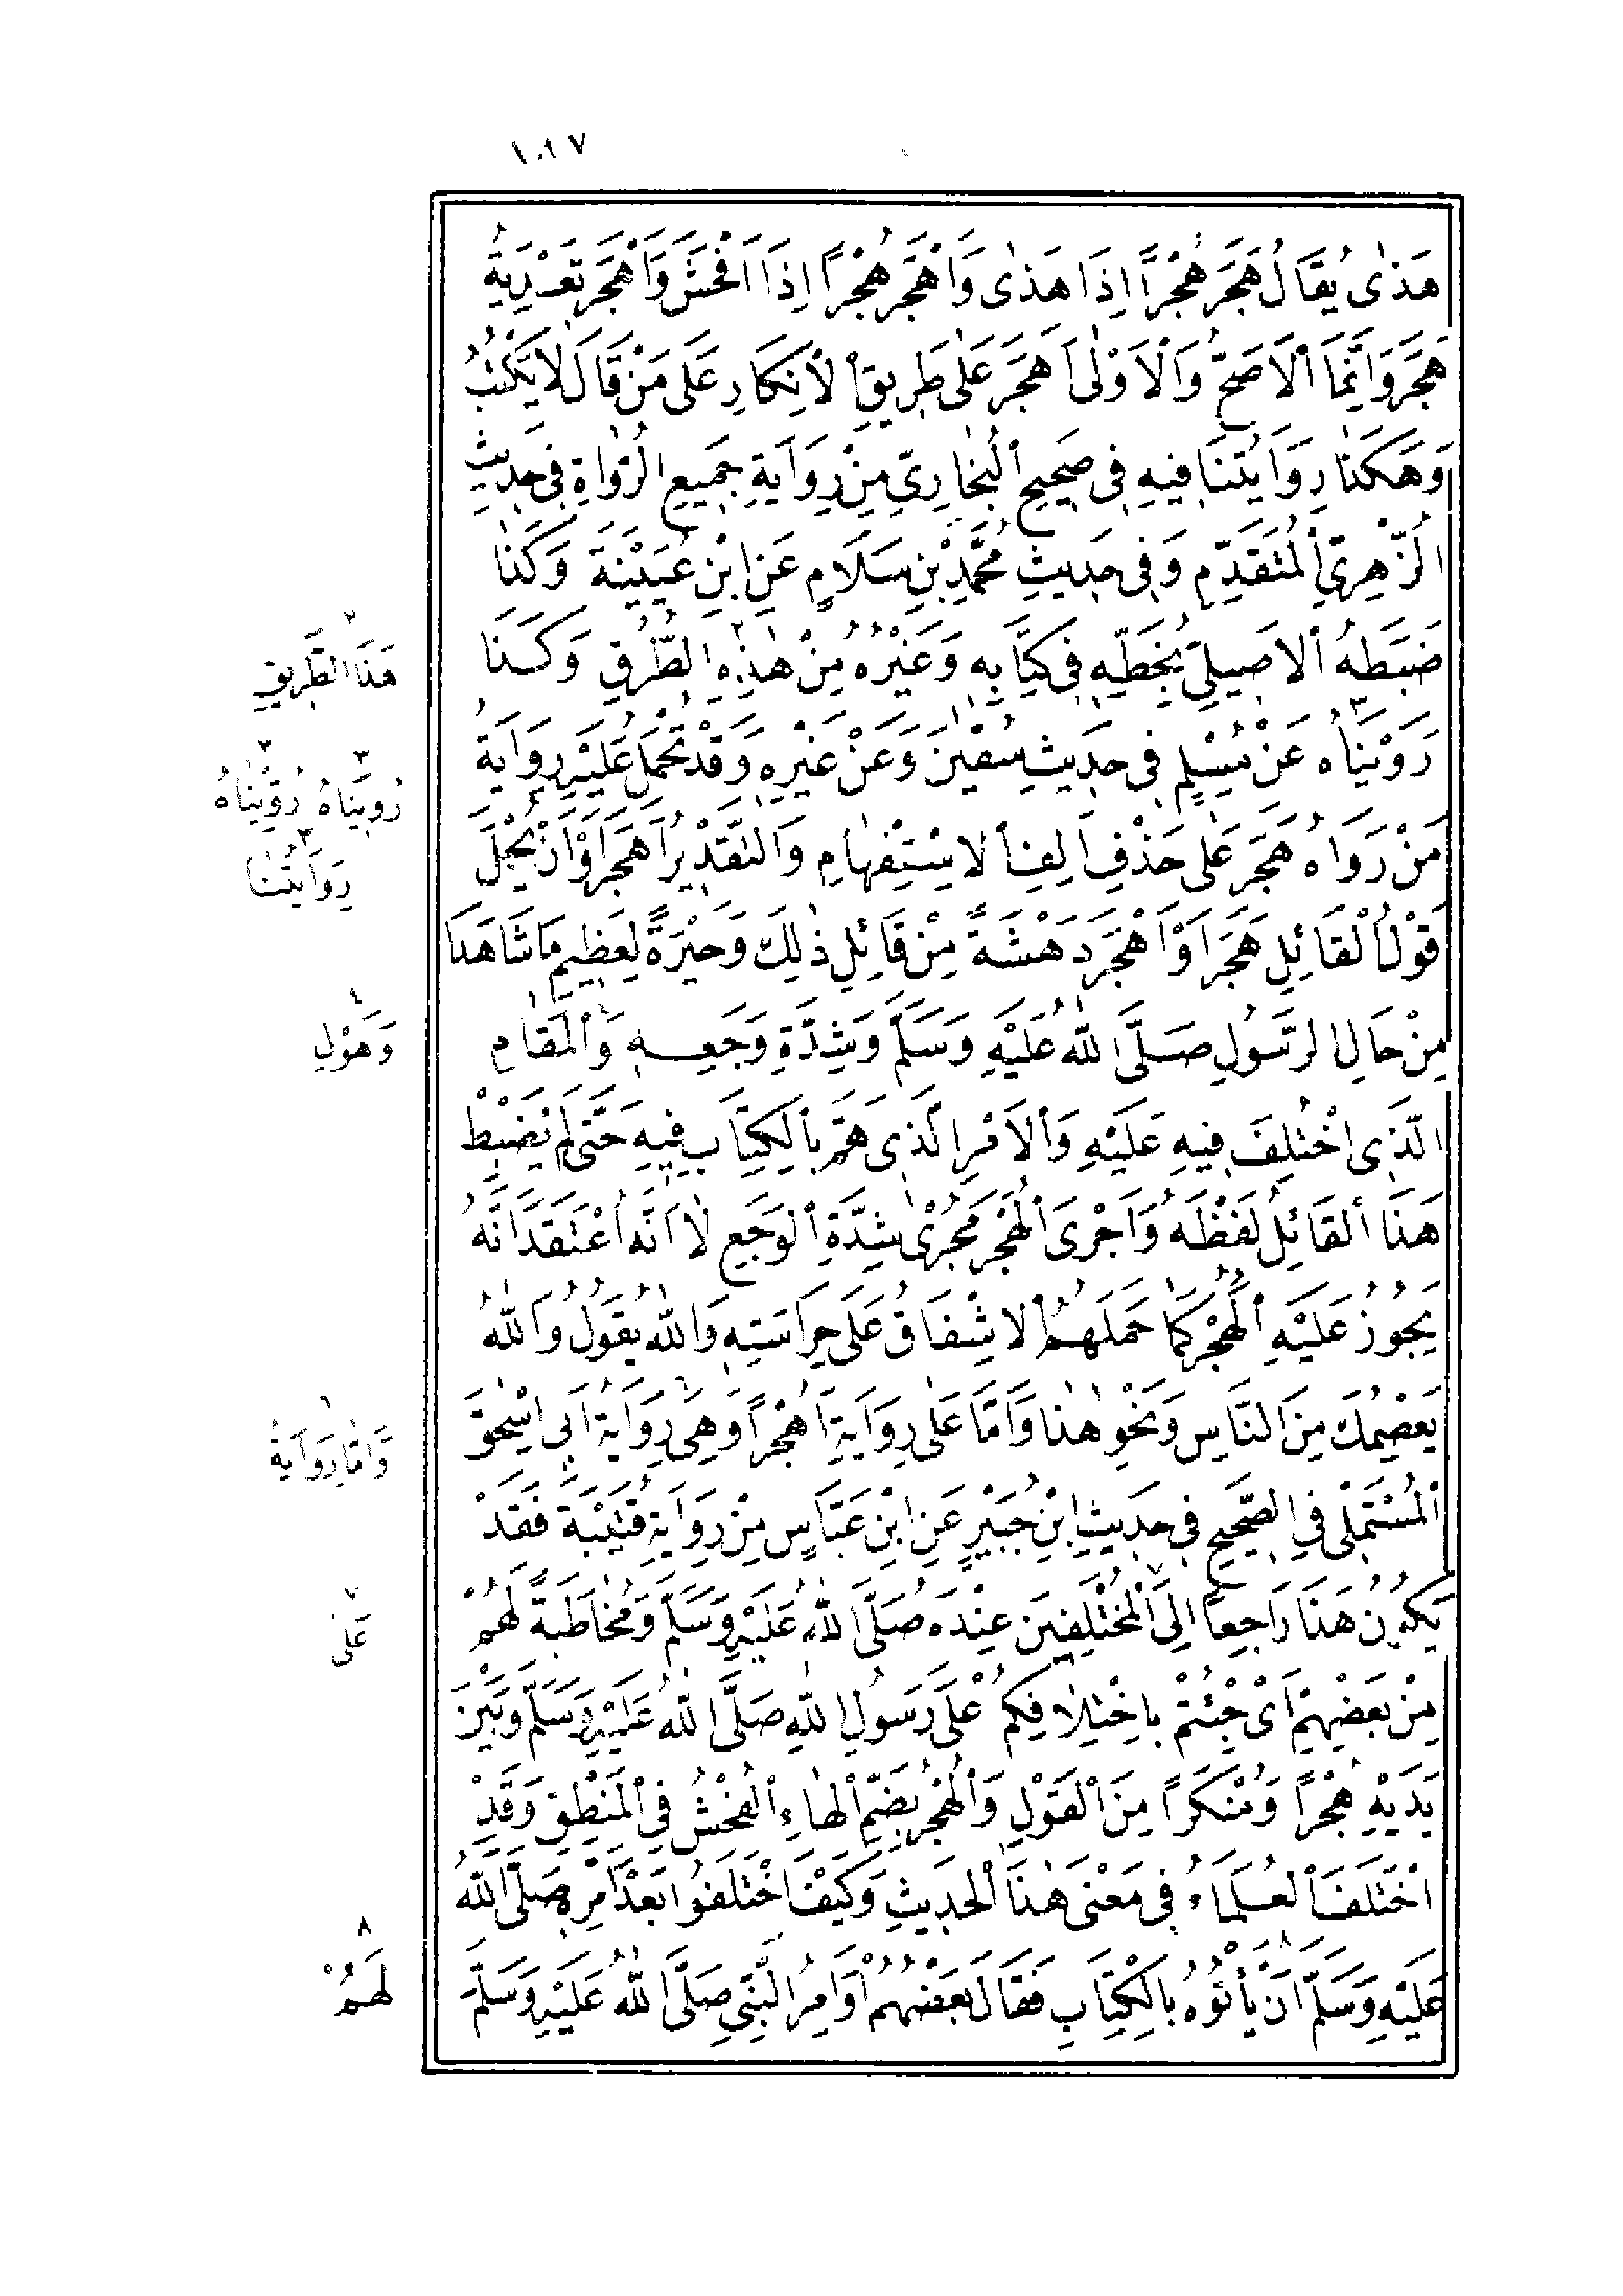 ١٨٧
هَذٰى يُقَالُ هَجَرَ هُجْراً اِذَا هَذٰى وَاَهْجَرَ هُجْراً اِذَا اَفْحَشَ وَاَهْجَرَ تَعْدِيَةُ
هَجَرَ وَاِنَّمَا الْاَصَحُّ وَالْاَوْلٰى اَهَجَرَ عَلٰى طَرِيقِ الْاِنْكَارِ عَلَى مَنْ قَالَ لَا يَكْتُبُ
وَهٰكَذَا رِوَايَتُنَا فِيهِ فِى صَحِيحِ الْبُخَارِىِّ مِنْ رِوَايَةِ جَمِيعِ الرُّوَاةِ فِى حَدِيثِ
الزُّهْرِىِّ الْمُتَقَدِّمِ وَفِى حَدِيثِ مُحَمَّدِ بْنِ سَلَامٍ عَنِ ابْنِ عُيَيْنَةَ وَكَذَا
ضَبَطَهُ الْاَصِيلِىُّ بِخَطِّهِ فِى كِتَابِهِ وَغَيْرُهُ مِنْ هٰذِهِ الطُّرُقِ وَكَذَا
هَذَا الطَّرِيقِ
رَوَيْنَاهُ عَنْ مُسْلِمٍ فِى حَدِيثِ سُفْيٰنَ وَعَنْ غَيْرِهِ وَقَدْ تُحْمَلُ عَلَيْهِ رِوَايَةُ
رُوِينَاهُ رُوِّينَاهُ
مَنْ رَوَاهُ هَجَرَ عَلٰى حَذْفِ اَلِفِ الْاِسْتِفْهَامِ وَالتَّقْدِيرُ اَهَجَرَ اَوْ اَنْ يُحْمَلَ
رِوَايَتُنَا
قَوْلُ الْقَائِلِ هَجَرَ اَوْ اَهْجَرَ دَهْشَةً مِنْ قَائِلِ ذٰلِكَ وَحَيْرَةً لِعَظِيمِ مَا شَاهَدَ
مِنْ حَالِ الرَّسُولِ صَلَّى اللّٰهُ عَلَيْهِ وَسَلَّمَ وَشِدَّةِ وَجَعِهِ وَالْمَقَامِ
وَهَوْلِ
الَّذِى اخْتُلِفَ فِيهِ عَلَيْهِ وَالْاَمْرِ الَّذِى هَمَّ بِالْكِتَابِ فِيهِ حَتّٰى لَمْ يَضْبِطْ
هَذَا الْقَائِلُ لَفْظَهُ وَاَجْرَى الْهُجْرَ مُجْرٰى شِدَّةِ الْوَجَعِ لَا اَنَّهُ اعْتَقَدَ اَنَّهُ
يَجُوزُ عَلَيْهِ الْهُجْرُ كَمَا حَمَلَهُمُ الْاِشْفَاقُ عَلَى حِرَاسَتِهِ وَاللّٰهُ يَقُولُ وَاللّٰهُ
يَعْصِمُكَ مِنَ النَّاسِ وَنَحْوِ هٰذَا وَاَمَّا عَلٰى رِوَايَةِ اَهُجْراً وَهِىَ رِوَايَةُ اَبِى اِسْحٰقَ
وَاَمَّا رِوَايَةُ
الْمُسْتَمْلِى فِى الصَّحِيحِ فِى حَدِيثِ ابْنِ جُبَيْرٍ عَنِ ابْنِ عَبَّاسٍ مِنْ رِوَايَةِ قُتَيْبَةَ فَقَدْ
يَكُونُ هَذَا رَاجِعاً اِلَى الْمُخْتَلِفِينَ عِنْدَهُ صَلَّى اللّٰهُ عَلَيْهِ وَسَلَّمَ وَمُخَاطَبَةً لَهُمْ
عَلٰى
مِنْ بَعْضِهِمْ اَىْ جِئْتُمْ بِاخْتِلَافِكُمْ عَلَى رَسُولِ اللّٰهِ صَلَّى اللّٰهُ عَلَيْهِ وَسَلَّمَ وَبَيْنَ
يَدَيْهِ هُجْراً وَمُنْكَراً مِنَ الْقَوْلِ وَالْهُجْرُ بِضَمِّ الْهَاءِ الْفُحْشُ فِى الْمَنْطِقِ وَقَدِ
اخْتَلَفَ الْعُلَمَاءُ فِى مَعْنَى هٰذَا الْحَدِيثِ وَكَيْفَ اخْتَلَفُوا بَعْدَ اَمْرِهِ صَلَّى اللّٰهُ
عَلَيْهِ وَسَلَّمَ اَنْ يَأْتُوهُ بِالْكِتَابِ فَقَالَ بَعْضُهُمْ اَوَامِرُ النَّبِىِّ صَلَّى اللّٰهُ عَلَيْهِ وَسَلَّمَ
لَهُمْ